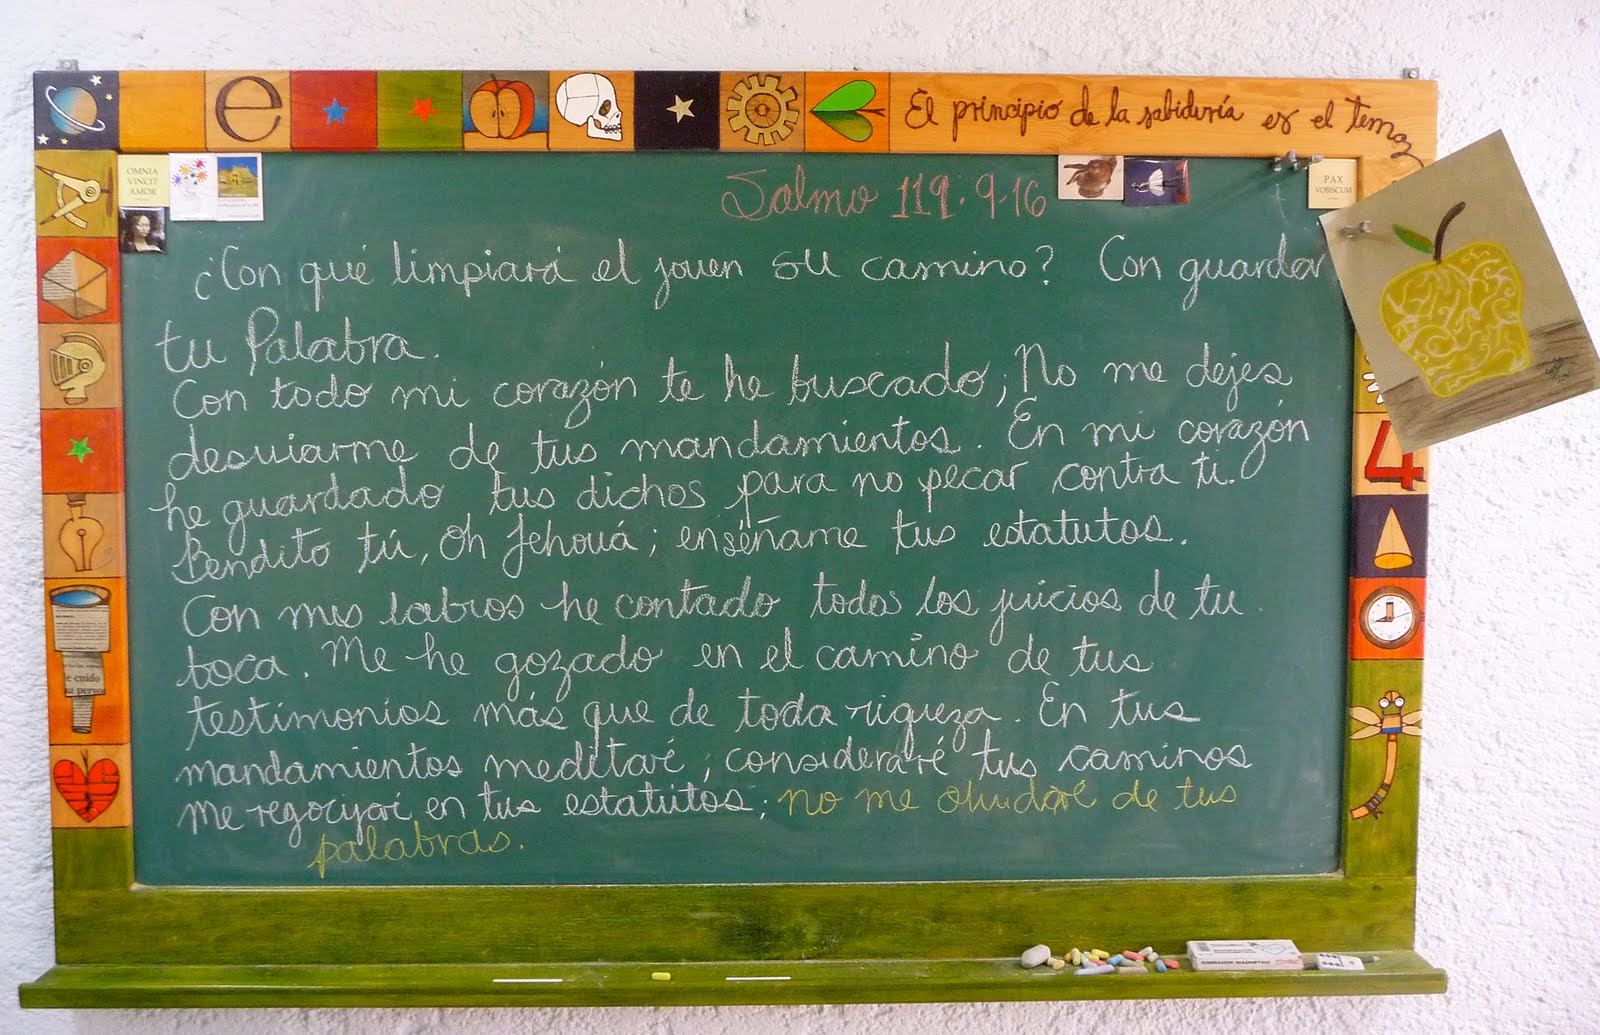 e
El principio de la sabiduría es el temor
OMNIA
VINCIT
AMOR
PAX
VOBISCUM
Salmo 119.9-16
¿Con qué limpiará el joven su camino? Con guardar
tu Palabra.
Con todo mi corazón te he buscado; No me dejes
desviarme de tus mandamientos. En mi corazón
he guardado tus dichos para no pecar contra ti.
Bendito tú, oh Jehová; enséñame tus estatutos.
Con mis labios he contado todos los juicios de tu
boca. Me he gozado en el camino de tus
testimonios más que de toda riqueza. En tus
mandamientos meditaré; consideraré tus caminos
Me regocijaré en tus estatutos; no me olvidaré de tus
palabras.
4
e cuido
na perso
BORRADOR MAGNETICO